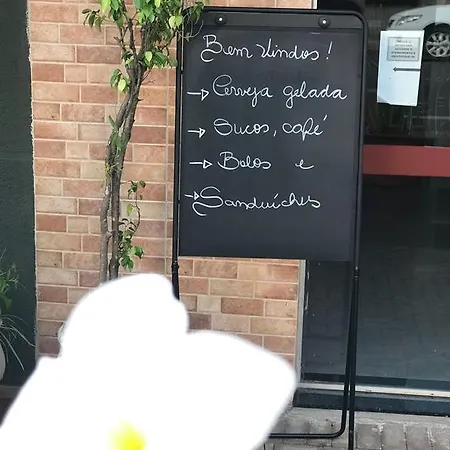 Bem Vindos!
→ Cerveja gelada
→ Sucos, café
→ Bolos e
→ Sanduíches